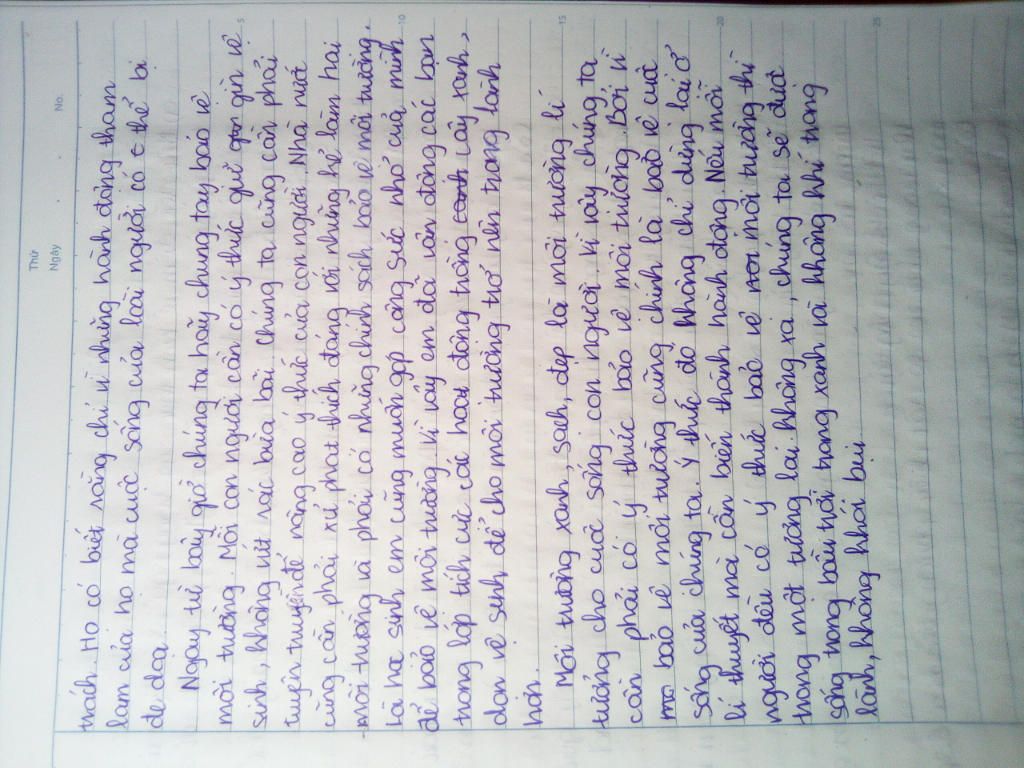 Thứ
Ngày
No.
trách. Họ có biết rằng chỉ vì những hành động tham
lam của họ mà cuộc sống của loài người có thể bị
đe doạ.
Ngay từ bây giờ chúng ta hãy chung tay bảo vệ
môi trường. Mỗi con người cần có ý thức giữ gìn vệ
sinh, không vứt rác bừa bãi. Chúng ta cũng cần phải
tuyên truyền để nâng cao ý thức của con người. Nhà nước
cũng cần phải xử phạt thích đáng với những kẻ làm hại
môi trường và phải có những chính sách bảo vệ môi trường.
Là học sinh em cũng muốn góp công sức nhỏ của mình
để bảo vệ môi trường. Vì vậy em đã vận động các bạn
trong lớp tích cực các hoạt động trồng cây xanh,
dọn vệ sinh, để cho môi trường trở nên trong lành
hơn.
Môi trường xanh, sạch, đẹp là môi trường lí
tưởng cho cuộc sống con người. Vì vậy chúng ta
cần phải có ý thức bảo vệ môi trường. Bởi vì
bảo vệ môi trường cũng chính là bảo vệ cuộc
sống của chúng ta. Ý thức đó không chỉ dừng lại ở
lí thuyết mà cần biến thành hành động. Nếu mỗi
người đều có ý thức bảo vệ môi trường thì
trong một tương lai không xa, chúng ta sẽ được
sống trong bầu trời trong xanh và không khí trong
lành, không khói bụi.
5
10
15
20
25